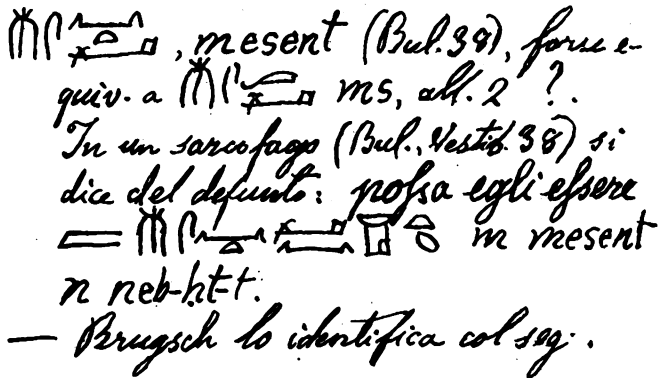 𓄟𓋴𓈖𓏏, mesent (Bul. 38), forse e-
quiv. a 𓄟𓋴 ms, all. 2 ?.
In un sarcofago (Bul., Vestib. 38) si
dice del defunto: possa egli essere
𓄟𓋴𓈖𓏏 m mesent
n neb-ḥt-t.
— Brugsch lo identifica col seg.